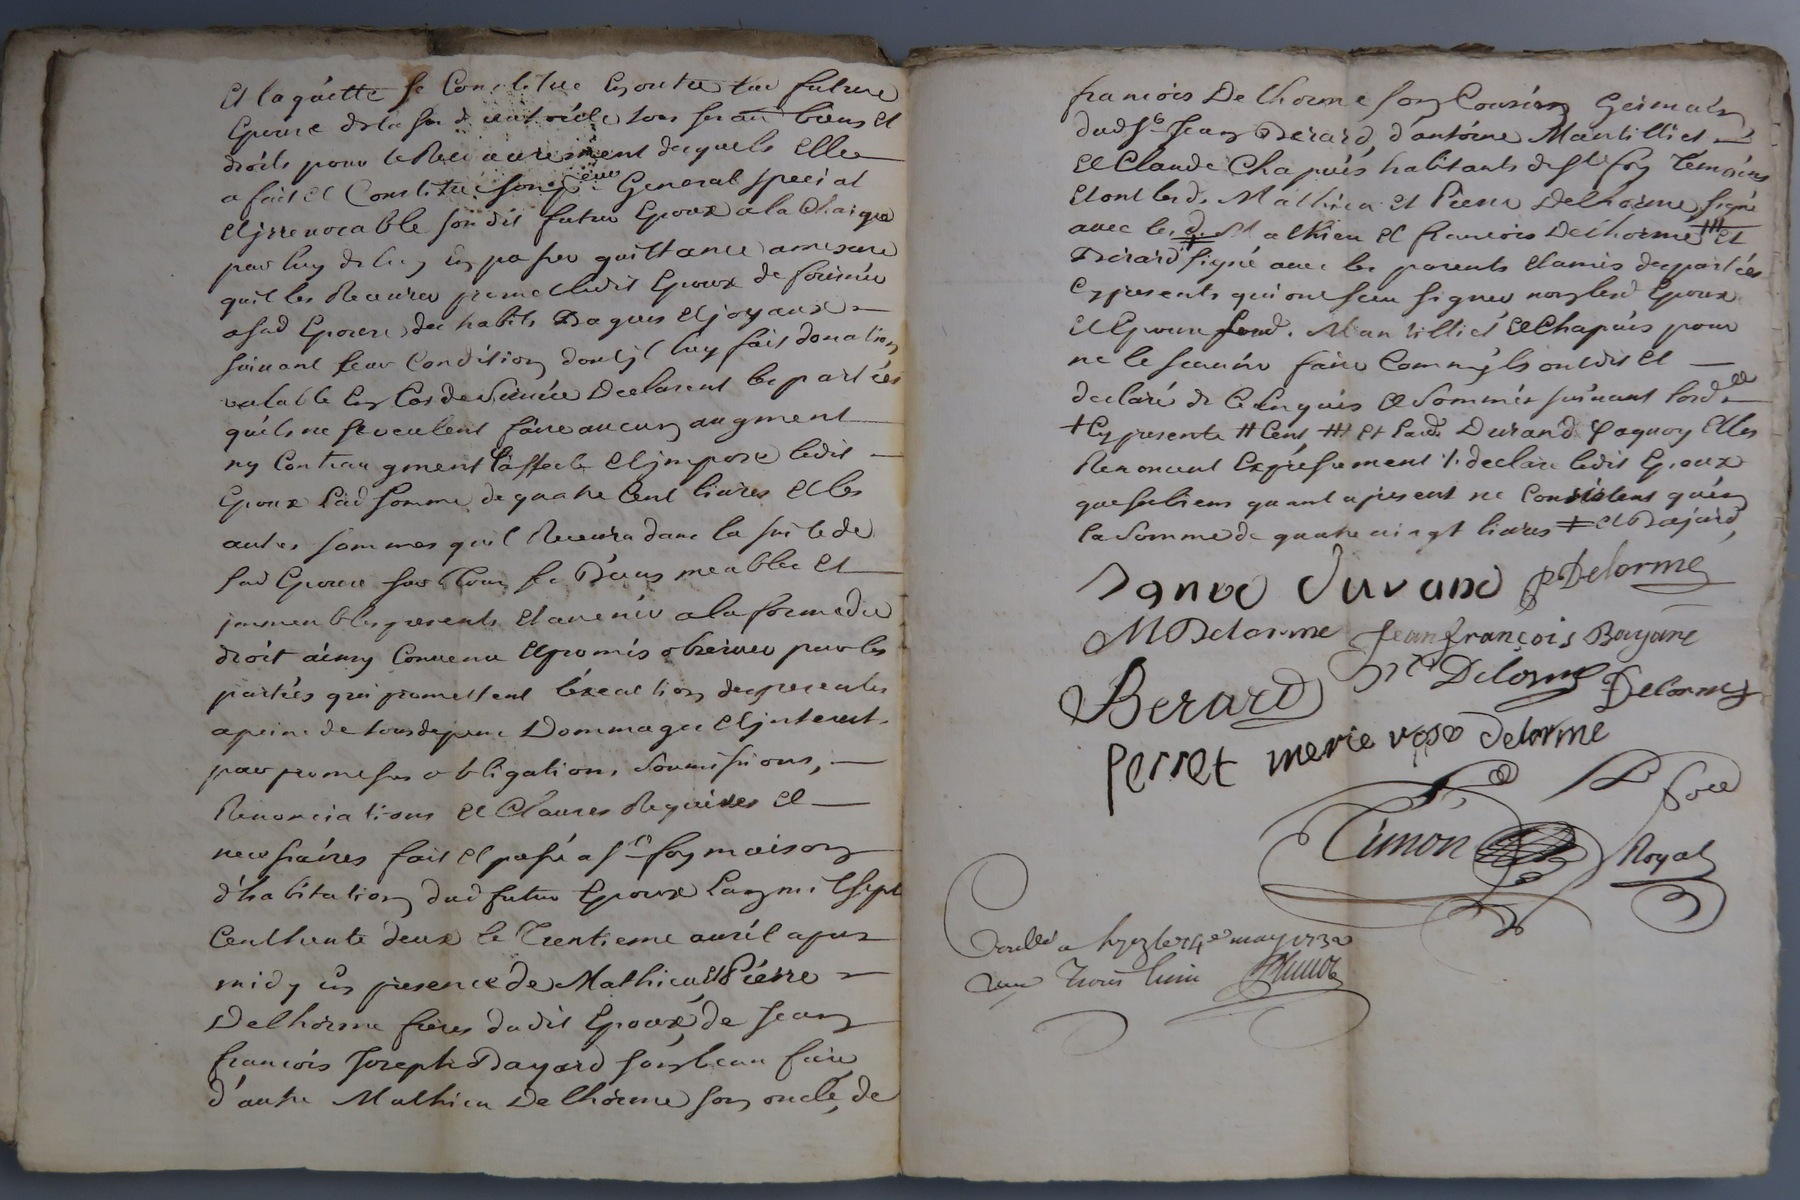 et laquelle se Constitue en outre lad future
Epouse de la sad. autorité tous ses au biens et
droits pour le Recouvrement desquels elle
a fait et Constitue son pr eur General special
et irrevocable son dit futur Epoux a la Charge
par luy de luy en passer quittance a mesure
quil les Recevra promet ledit Epoux de fournir
a sad Epouse des habits Bagues et joyaux
suivant leur Condition dont jl luy fait donation
valable en Cas de Survie Declarent les parties
quils ne se veulent faire aucun augment
ny Contre augment Caffecte et jmpose ledit
Epoux lad somme de quatre Cent livres et les
autres sommes quil Recevra dans la suite de
sad Epouse sur tous ses Biens meubles et
jmmeubles presents et avenir a la forme du
droit ainsy Convenu et promis observer par les
parties qui promettent lexecution des presentes
a peine de tous depens Dommages et jnterest
par promesses obligations, Soumissions,
Renonciations et Clauses Requises et
necessaires fait et passé a Ste foy maison
d'habitation dud futur Epoux Lan mil sept
Cent trente deux le Trentieme avril apres
midy en presence de Mathieu et Pierre
Delhorme freres dudit Epoux, de Jean
francois Joseph Bayard son beau frere
d'autre Mathieu Delhorme son oncle, de
francois Delhorme son Cousin Germain
dud sr Jean Berard, d'antoine Mantilliet
et Claude Chapuis habitants de Ste foy Temoins
et ont lesd. Mathieu et Pierre Delhorme signé
avec led. Mathieu et francois Delhorme ⧻ et
Berard signé avec les parents et amis des parties
Cy presents qui ont sceu signer non lesd Epoux
et Epouse lesd. Mantilliet et Chapuis pour
ne le scavoir faire Comm'jls ont dit et
declaré de Ce Enquis et Sommés suivant lord ce
+ Cy presente # Cent ⧻ et lad. Durand Elles
Renoncent Expressement /. declare ledit Epoux
que ses biens quant a present ne Consistent qu'en
la Somme de quatre vingt livres ‡ et Bajard,
Durand PDelorme
MDelorme Jean françois Bayard
Berard Delorme Delorme
Perret merie Delorme
Simon Nore
Royal
Conllé a le 14e may 1732
Trois livres